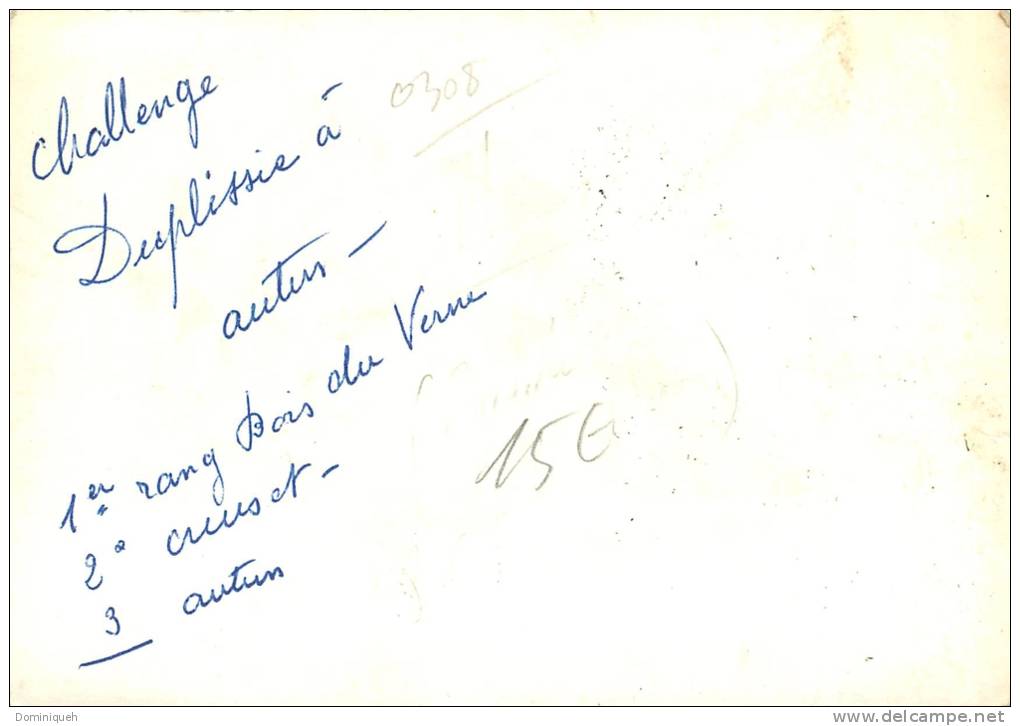 challenge
Duplissie à
autun -
1er rang Bois du Verne
2e creusot -
3 autun
0308
15€
Dominiqueh
www.delcampe.net